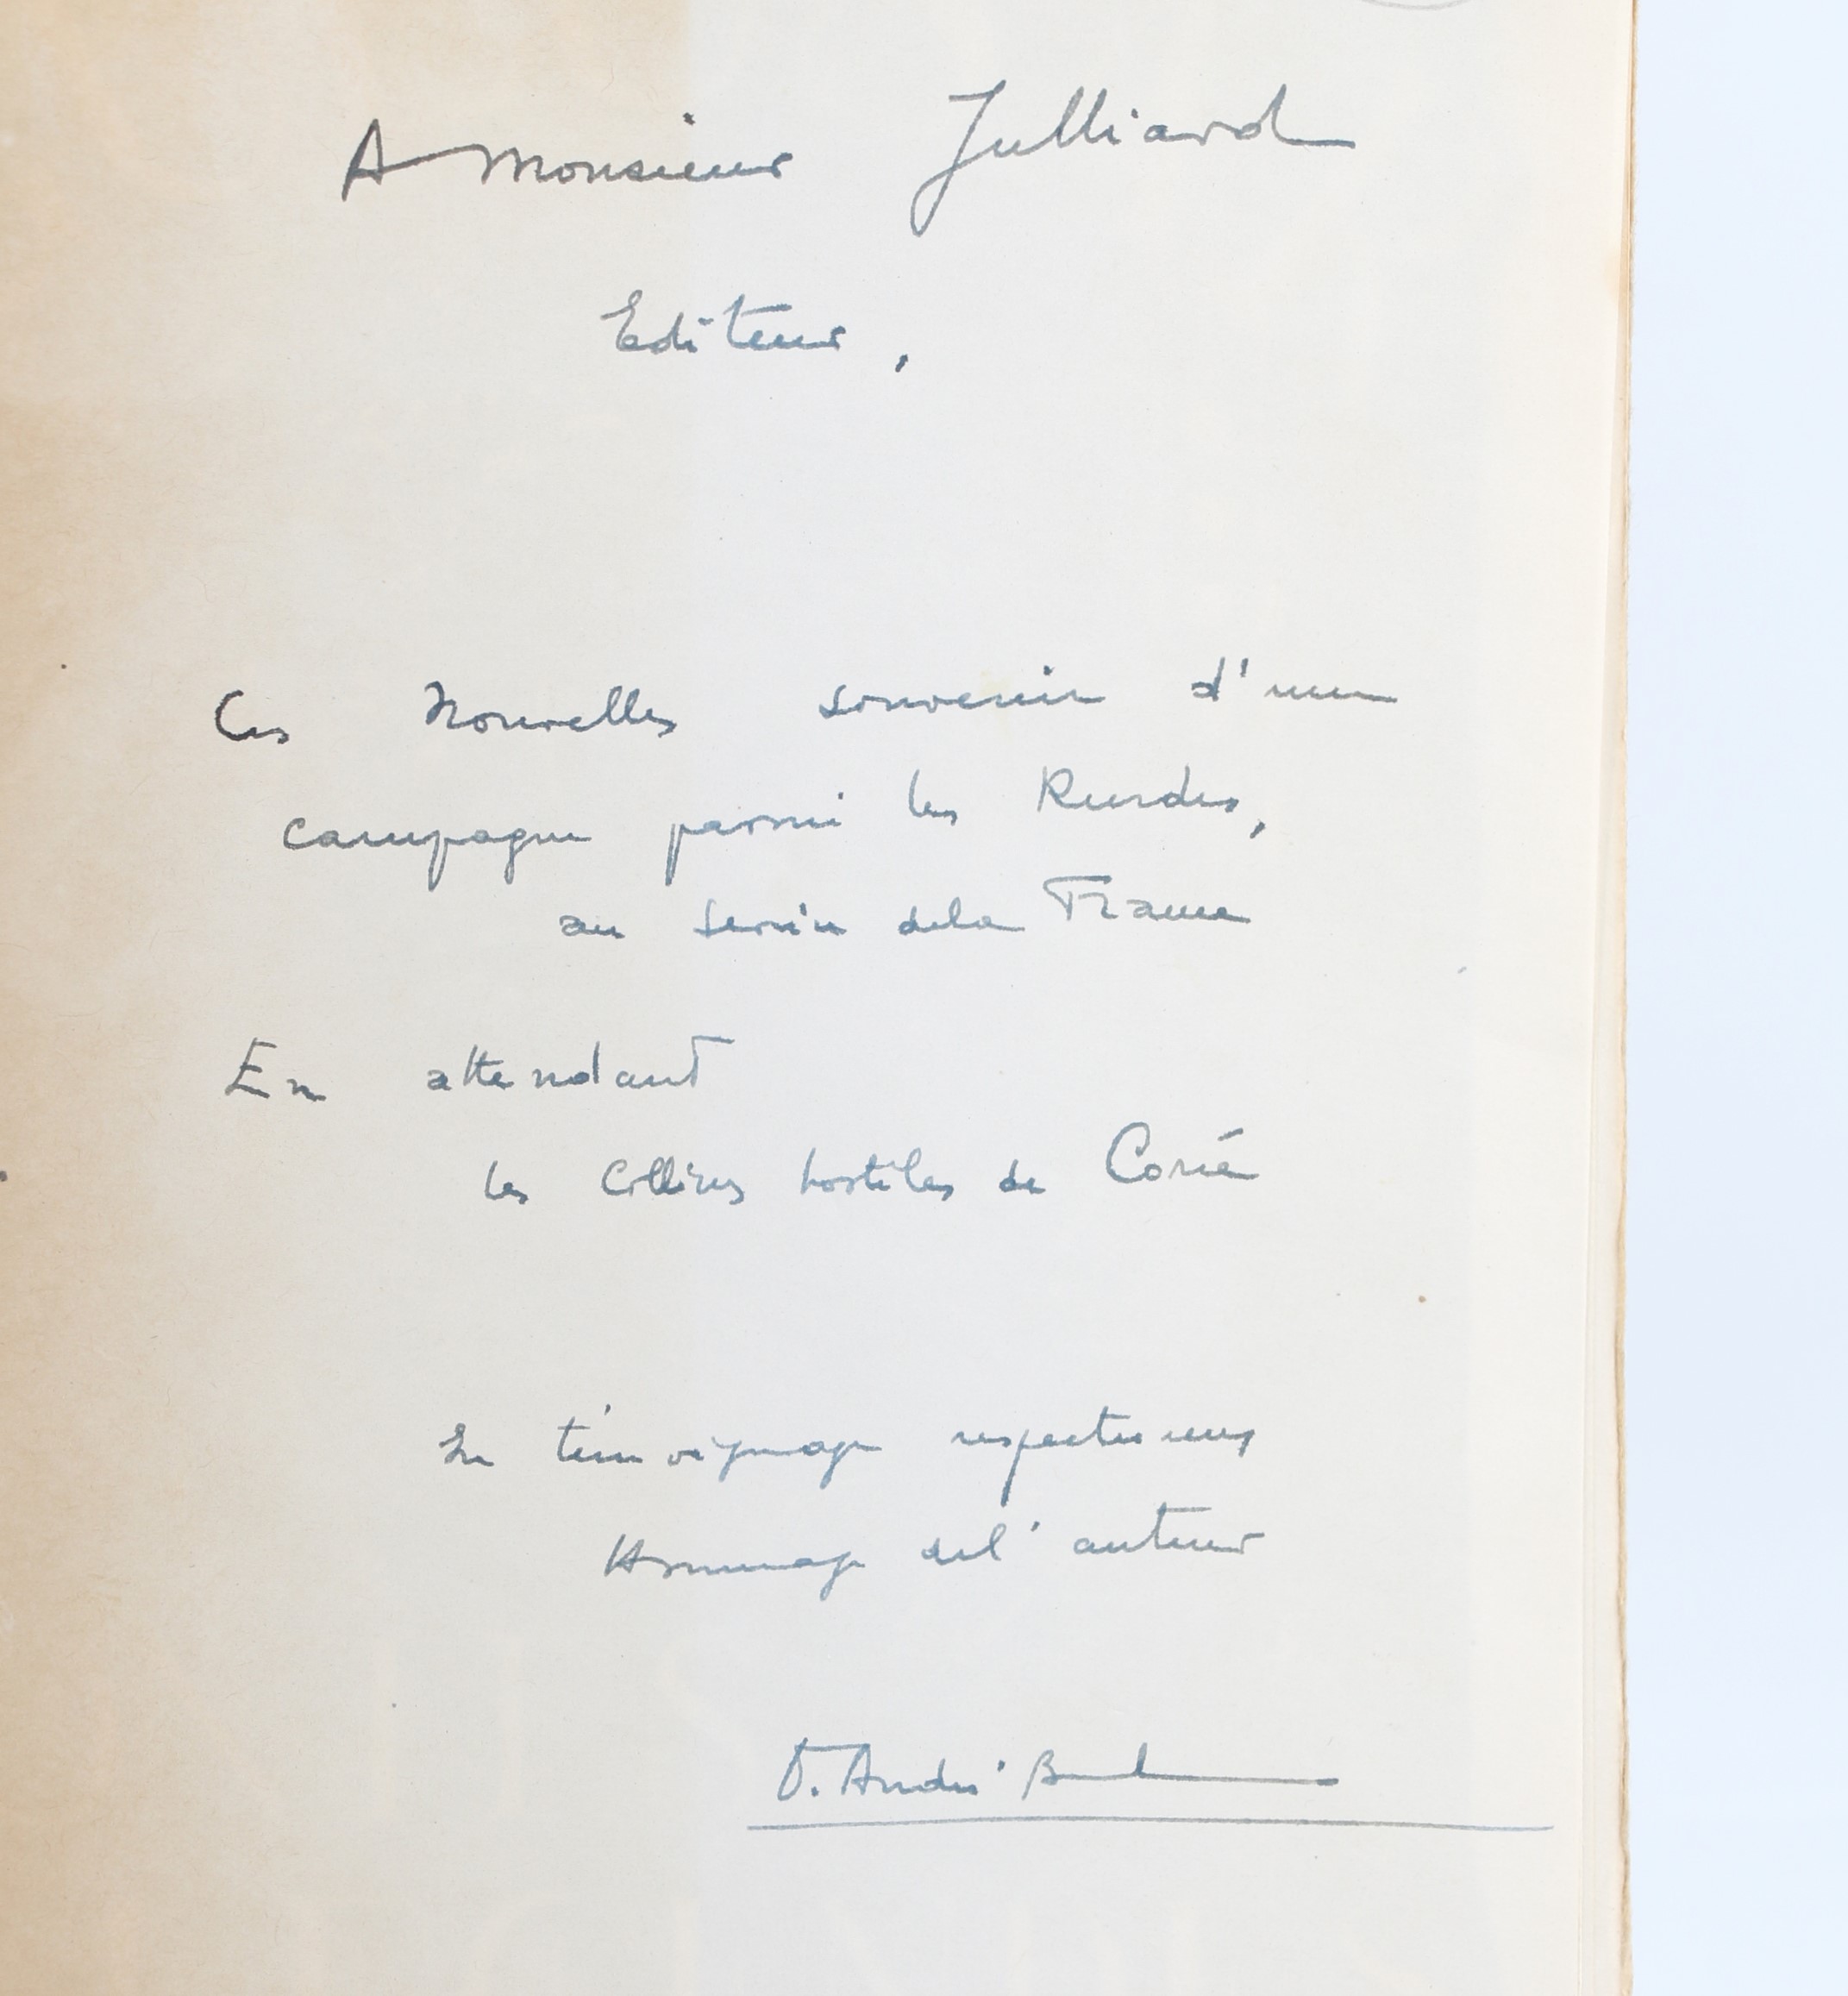 A Monsieur Julliard
Editeur,
Ces Nouvelles souvenir d'une
campagne parmi les Kurdes,
au service de la France
En attendant
les Collines hostiles de Corée
Le témoignage respectueux
Hommage de l'auteur
André